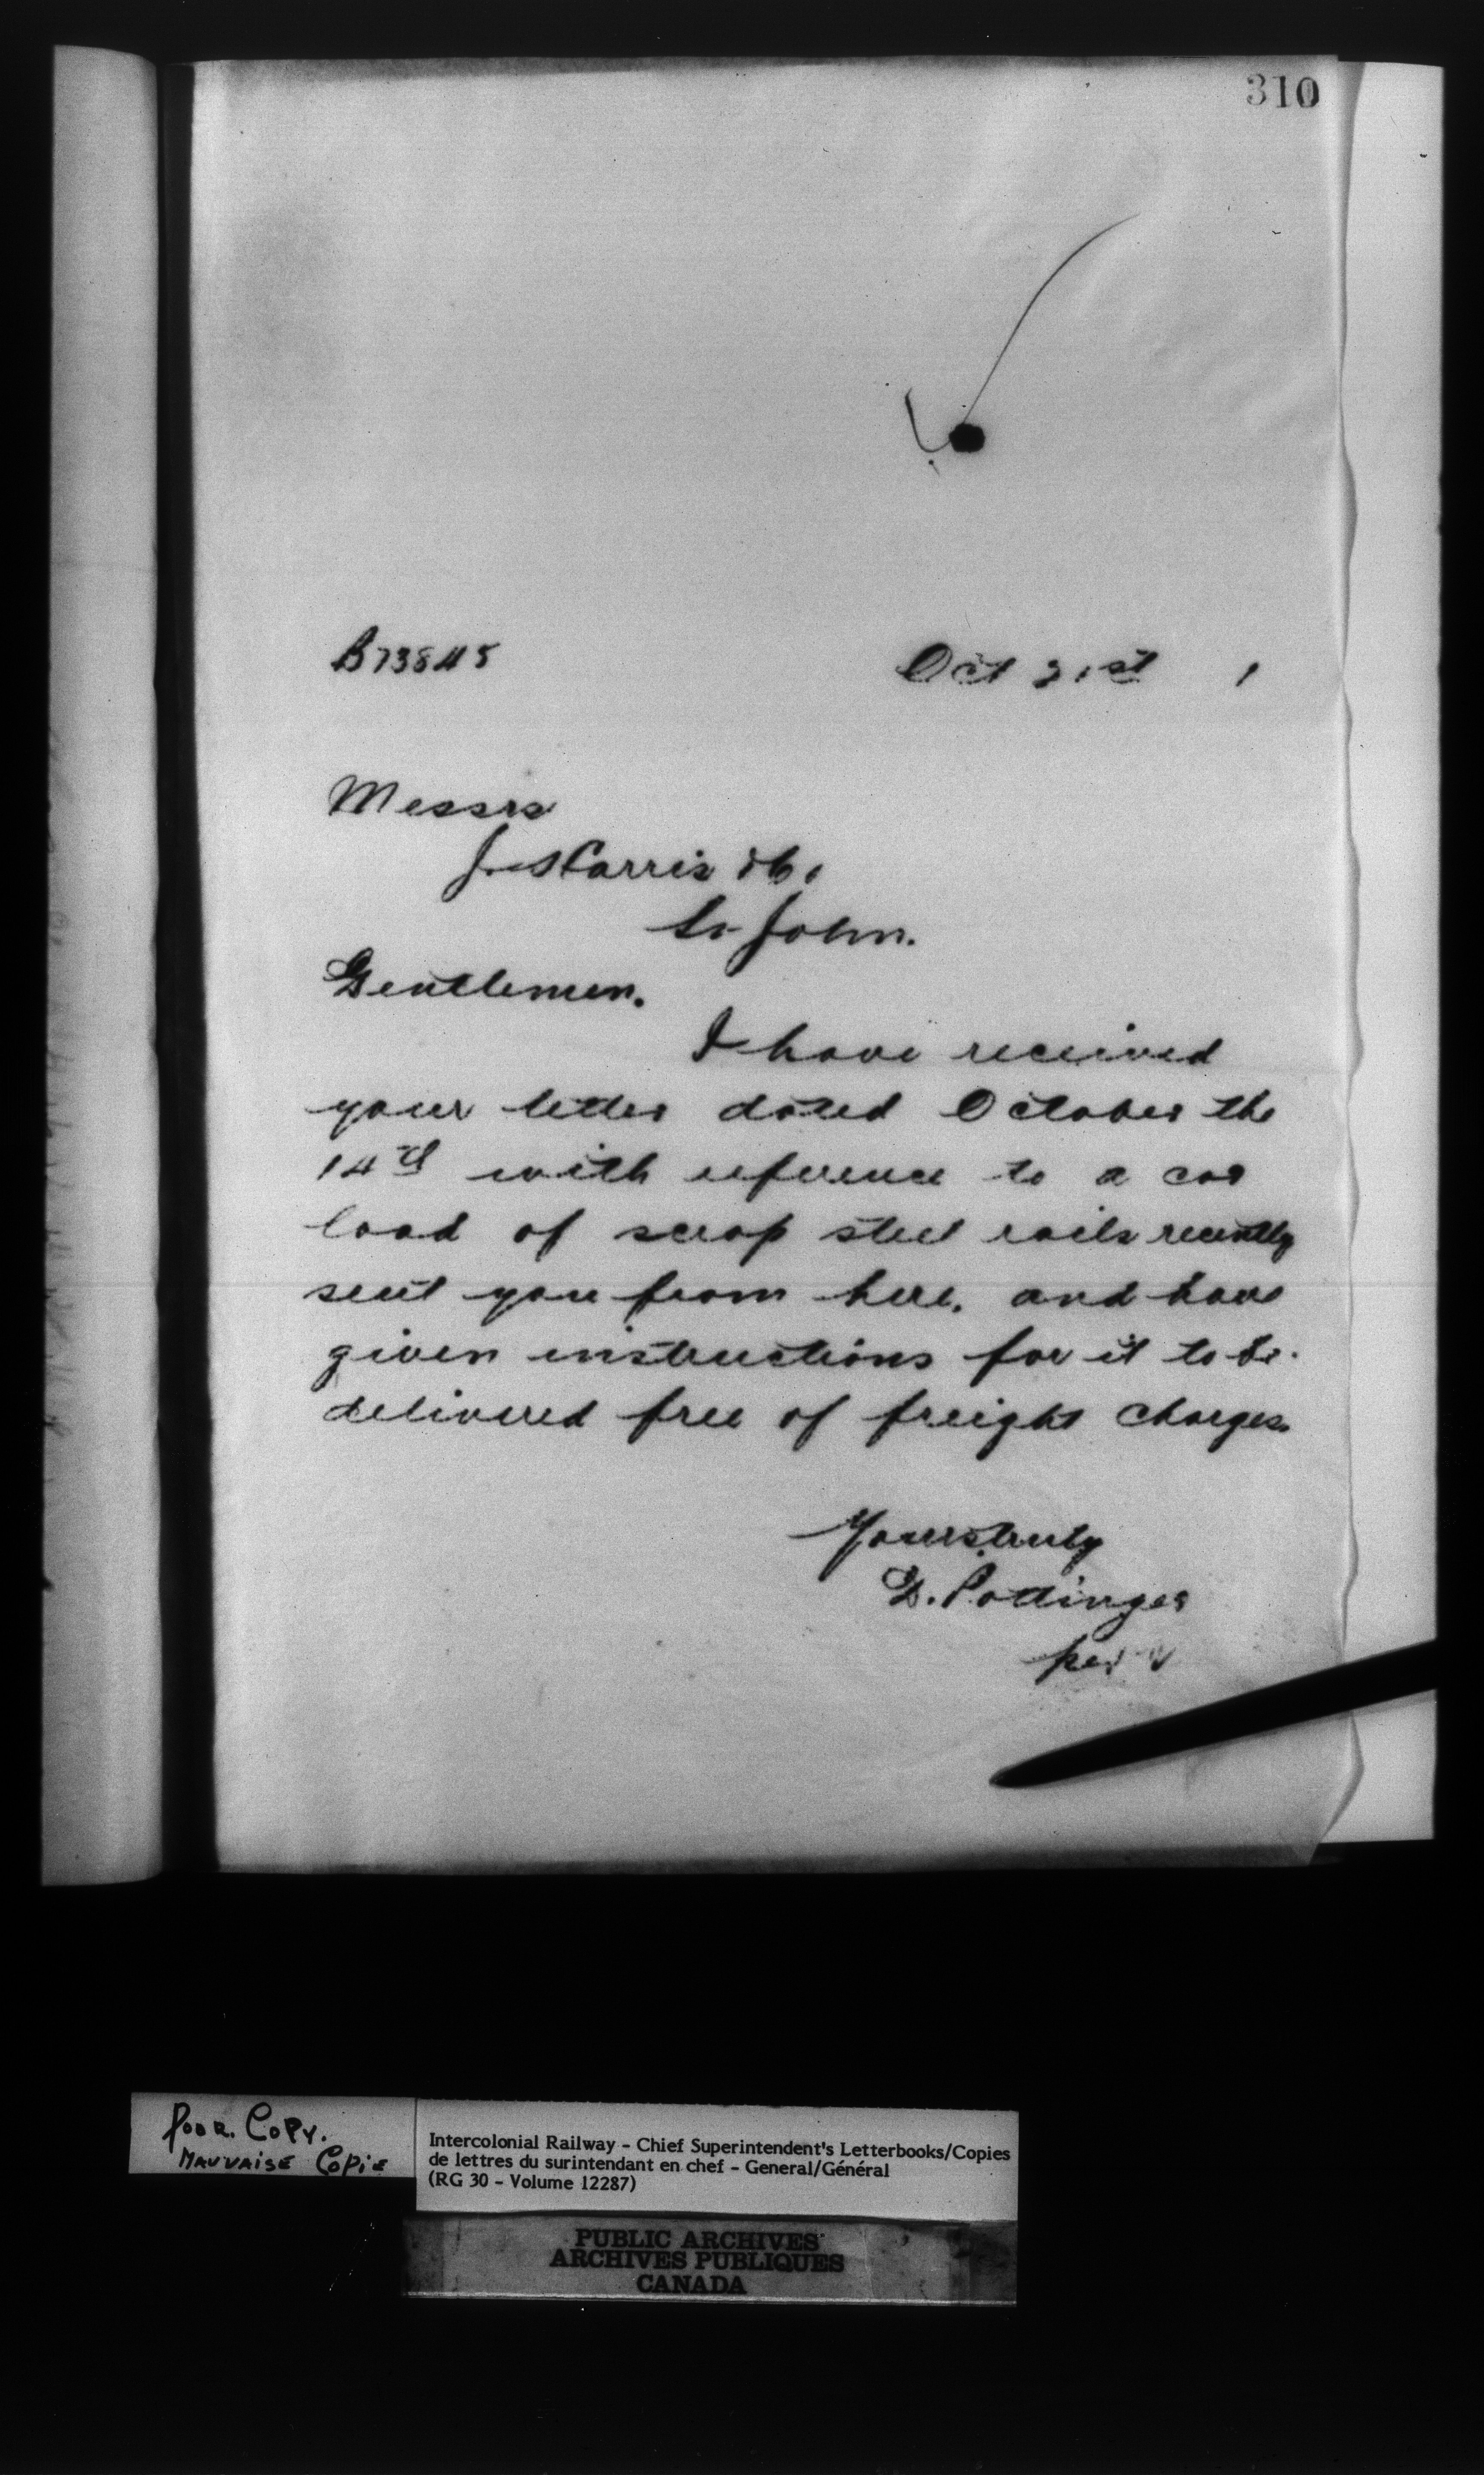 310
B73845
Oct 21st 1
Messrs
J. Harris & Co.
St John.
Gentlemen.
I have received
your letter dated October the
14th with reference to a car
load of scrap steel rails recently
sent you from here, and have
given instructions for it to be
delivered free of freight charges.
Yours truly
D. Pottinger
per
Poor. Copy.
Mauvaise Copie
Intercolonial Railway - Chief Superintendent's Letterbooks/Copies
de lettres du surintendant en chef - General/Général
(RG 30 - Volume 12287)
PUBLIC ARCHIVES
ARCHIVES PUBLIQUES
CANADA